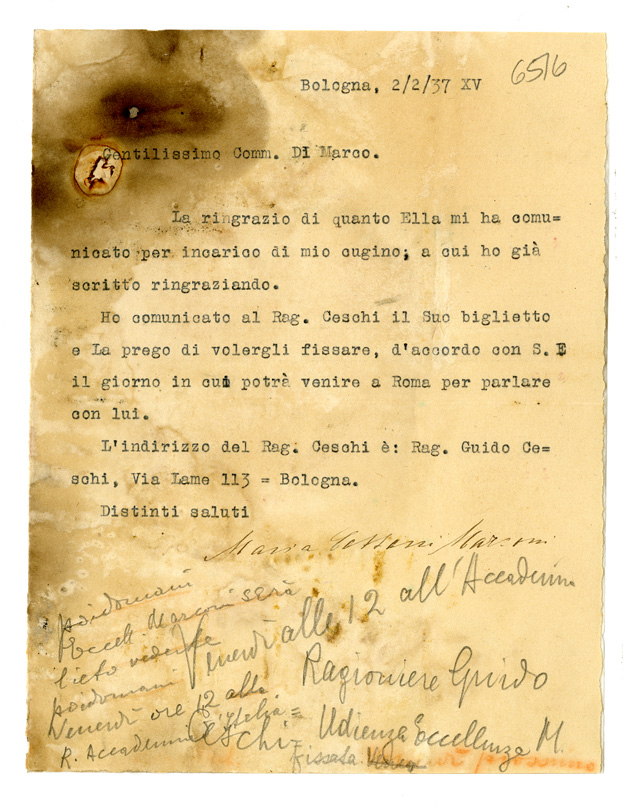 Bologna, 2/2/37 XV
6516
Gentilissimo Comm. Di Marco.
La ringrazio di quanto Ella mi ha comu=
nicato per incarico di mio cugino; a cui ho già
scritto ringraziando.
Ho comunicato al Rag. Ceschi il Suo biglietto
e La prego di volergli fissare, d'accordo con S. E
il giorno in cui potrà venire a Roma per parlare
con lui.
L'indirizzo del Rag. Ceschi è: Rag. Guido Ce=
schi, Via Lame 113 = Bologna.
Distinti saluti
Maria Marconi
Venerdì alle 12 all'Accademia
Ragioniere Guido
Ceschi = Udienza Eccellenza M.
fissata
prossimo
posdomani
Eccell Marconi sera
lieto vederla
posdomani
Venerdì ore 12 alla
R. Accademia d'Italia =